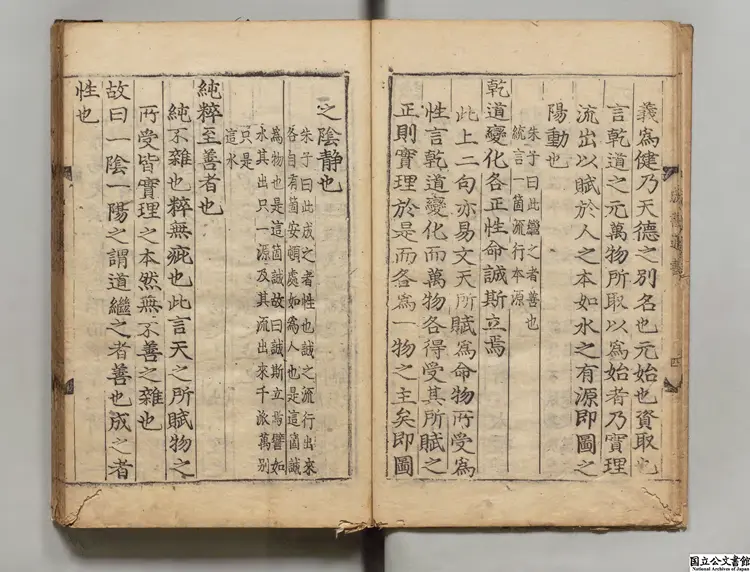 義爲健乃天德之別名也元始也資取也
言乾道之元萬物所取以爲始者乃實理
流出以賦於人之本如水之有源即圖之
陽動也
朱子曰此繼之者善也
統言一箇流行本源
乾道變化各正性命誠斯立焉
此上二句亦易文天所賦爲命物所受爲
性言乾道變化而萬物各得受其所賦之
正則實理於是而各爲一物之主矣即圖
之陰靜也
朱子曰此成之者性也誠之流行出來
各自有箇安頓處如爲人也是這箇誠
爲物也是這箇誠故曰誠斯立焉譬如
水其出只一源及其流出來千派萬別
只是
這水
純粹至善者也
純不雜也粹無疵也此言天之所賦物之
所受皆實理之本然無不善之雜也
故曰一陰一陽之謂道繼之者善也成之者
性也
四
国立公文書館
National Archives of Japan